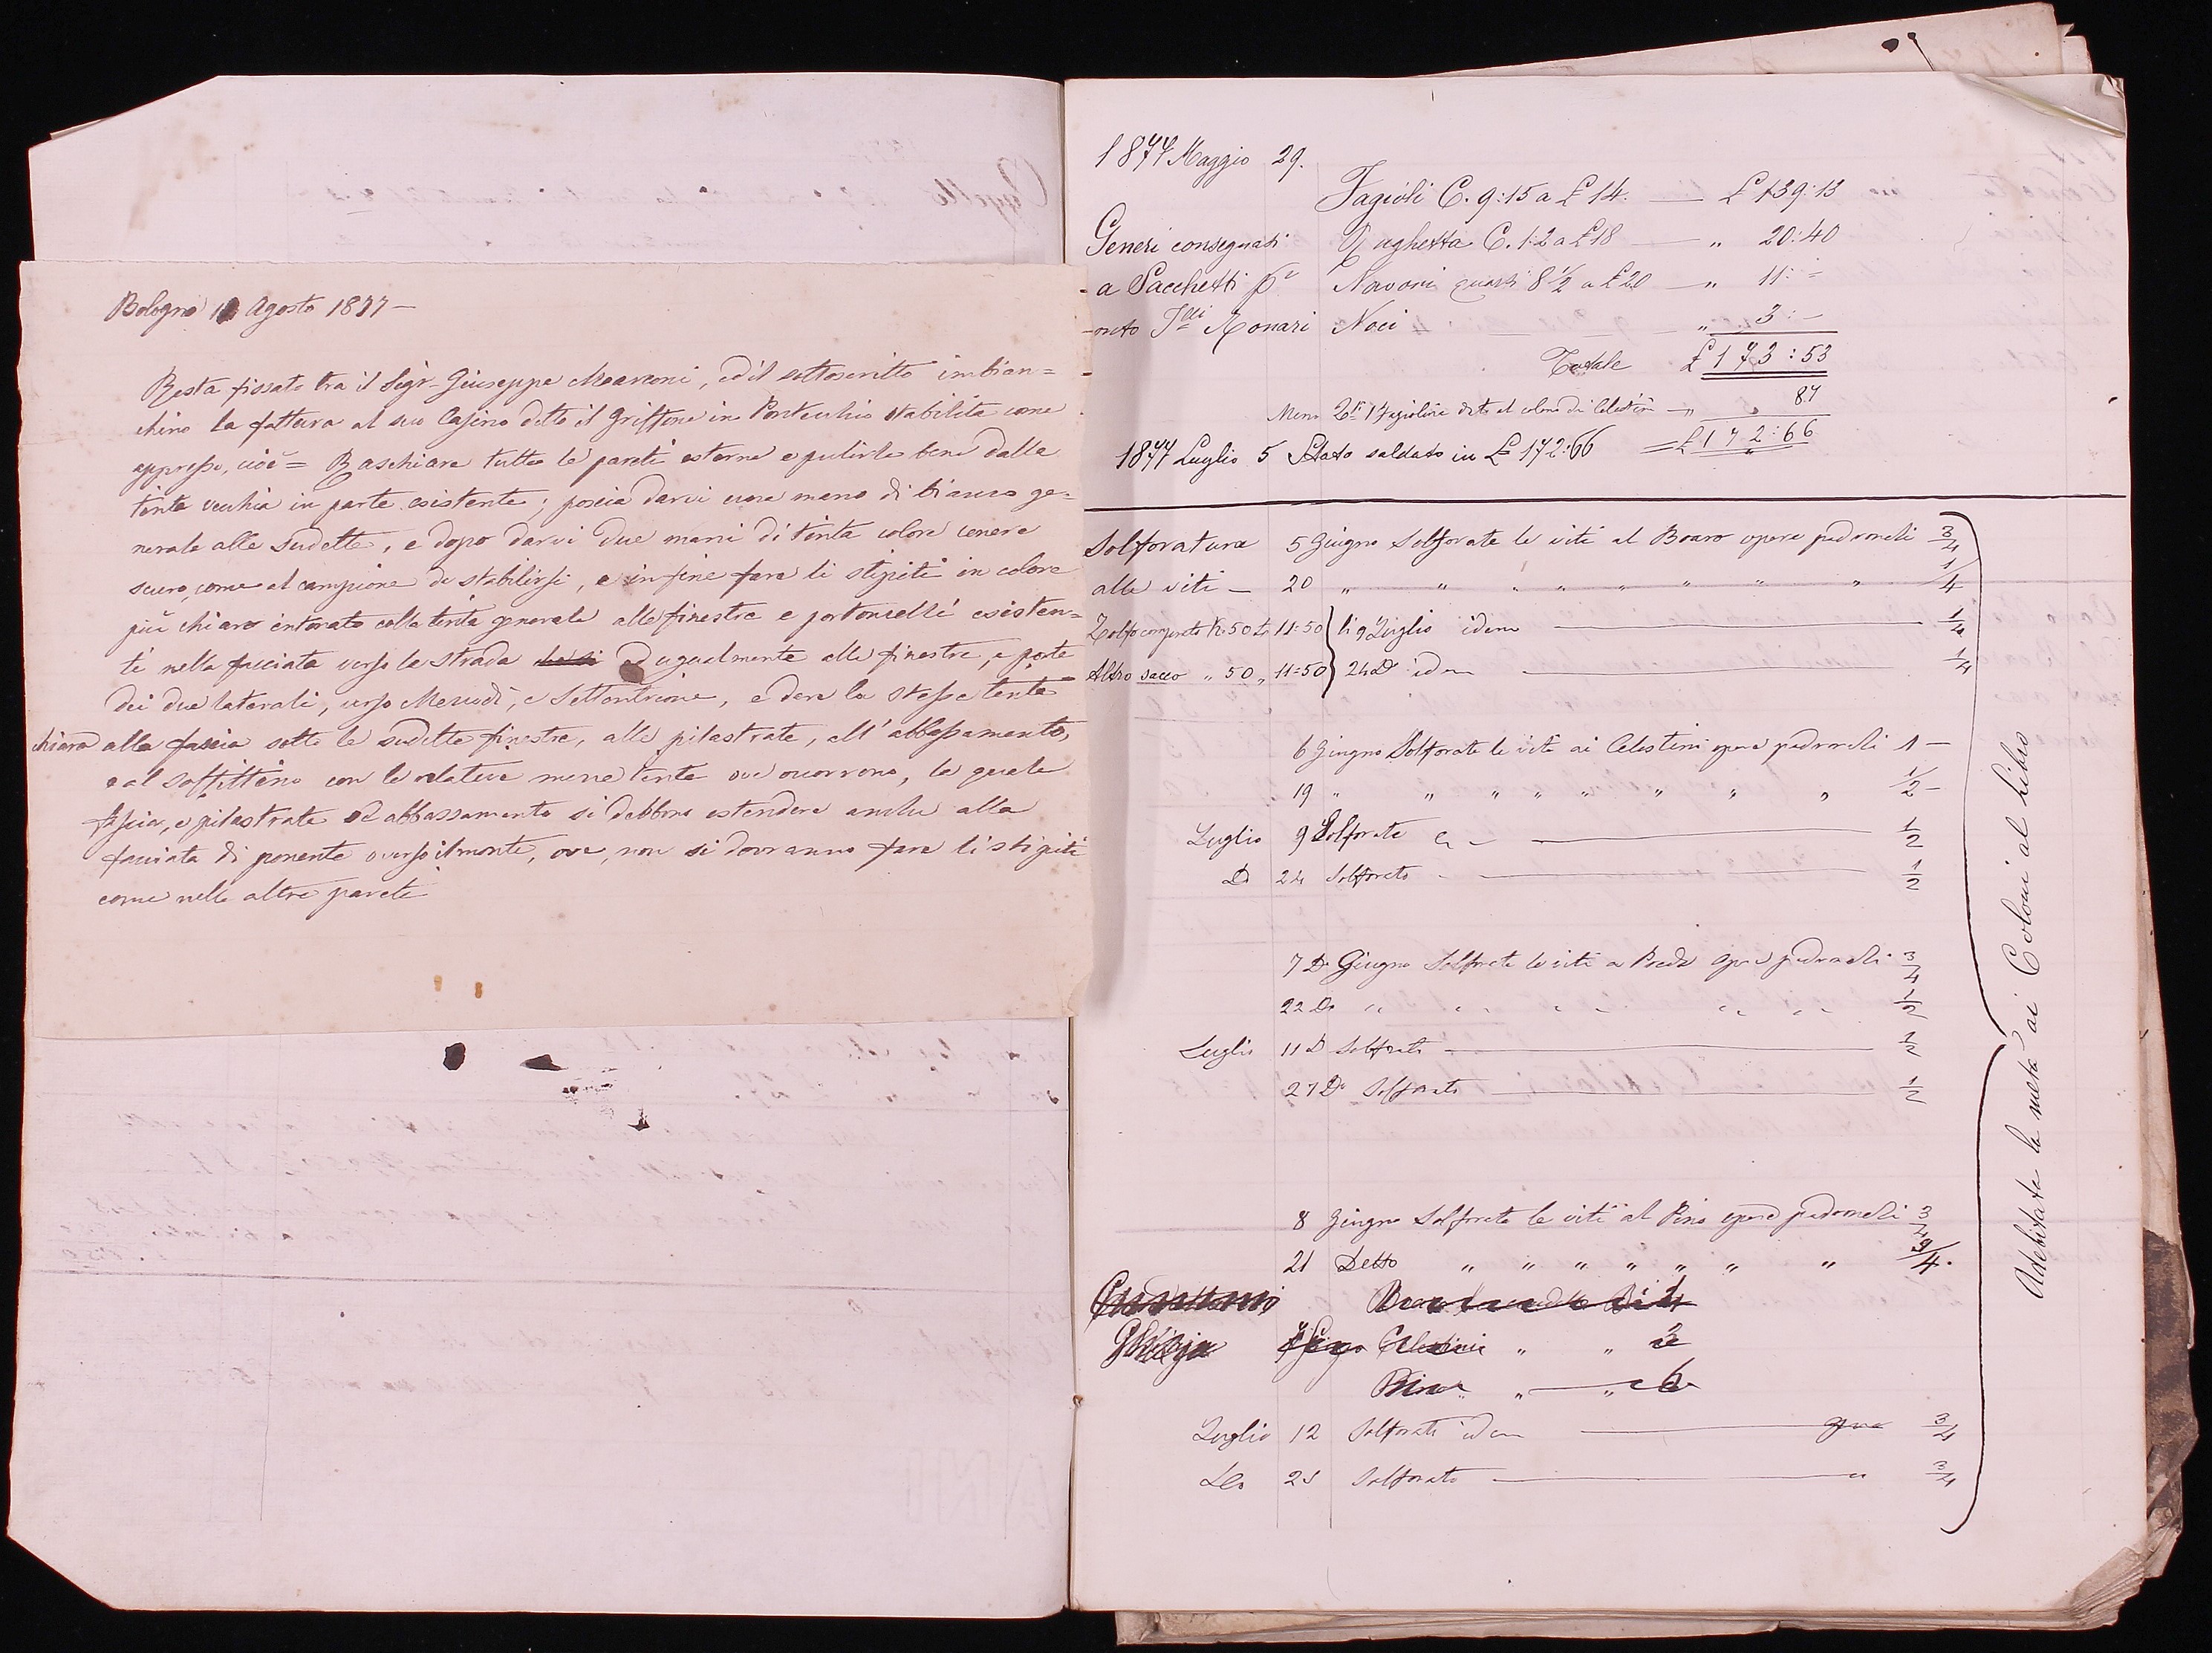 Bologna 1 Agosto 1877 —
Resta fissato tra il Sigr. Giuseppe Marconi, ed il sottoscritto imbian=
chino la fattura al suo Casino detto il Griffone in Pontecchio stabilita come
appresso, cioè = Raschiare tutte le pareti esterne e pulirle bene dalla
tinta vecchia in parte esistente; poscia darvi una mano di bianco ge=
nerale alle sudette, e dopo darvi due mani di tinta colore cenere
scuro, come al campione da stabilirsi, e infine fare li stipiti in colore
più chiaro intonato colla tinta generale alle finestre e portoncelli esisten=
ti nella facciata verso la strada ed ugualmente alle finestre, e porte
dei due laterali, verso Meriodì, e Settentrione, e dare la stessa tinta
chiara alla fascia sotto le sudette finestre, alle pilastrate, all' abbassamento,
e al soffittino con le relative mezze tinte ove occorrono, la quale
fascia, e pilastrate ed abbassamento si debbono estendere anche alla
facciata di ponente o verso il monte, ove, non si dovranno fare li stipiti
come nelle altre pareti
1877 Maggio 29.
Fagioli C. 9:15 a £ 14. — £ 139:13
Generi consegnati Veghetta C. 1:2 a £ 18 — „ 20:40
a Sacchetti pr Navoni quarti 8 1/2 a £ 20 — „ 11: =
onto Flli Monari Noci „ 3: —
Totale £ 173:53
Meno 1 Fagiolina data al colono di Celestini — „ 87
1877 Luglio 5 Stato saldato in £ 172:66 = £ 172:66
Solforature 5 Giugno Solforate le viti al Boaro opere padronali 3/4
alle viti — 20 „ „ „ „ „ „ „ „ 1/4
Zolfo comperato K. 50 £ 11:50 li 9 Luglio idem — 1/4
Altro sacco „ 50 „ 11=50 24 Do idem — 1/4
6 Giugno Solforate le viti ai Celestini opere padronali 1 —
19 „ „ „ „ „ „ „ „ 1/2 —
Luglio 9 Solforate „ — 1/2
Do 24 Solforato — 1/2
7 Do Giugno Solforate le viti a Preda opere padronali 3/4
22 Do „ „ „ „ „ „ 1/2
Luglio 11 D Solforato — 1/2
27 Do Solforato — 1/2
8 Giugno Solforate le viti al Pino opere padronali 3/4
21 Detto „ „ „ „ „ „ „ 3/4.
Ghiaja Giugno Celestini „ „ 3
Pino „ — „ 6
Luglio 12 Solforato idem — opere 3/4
Do 25 Solforato — „ 3/4
Adebitata la metà ai Coloni al libro